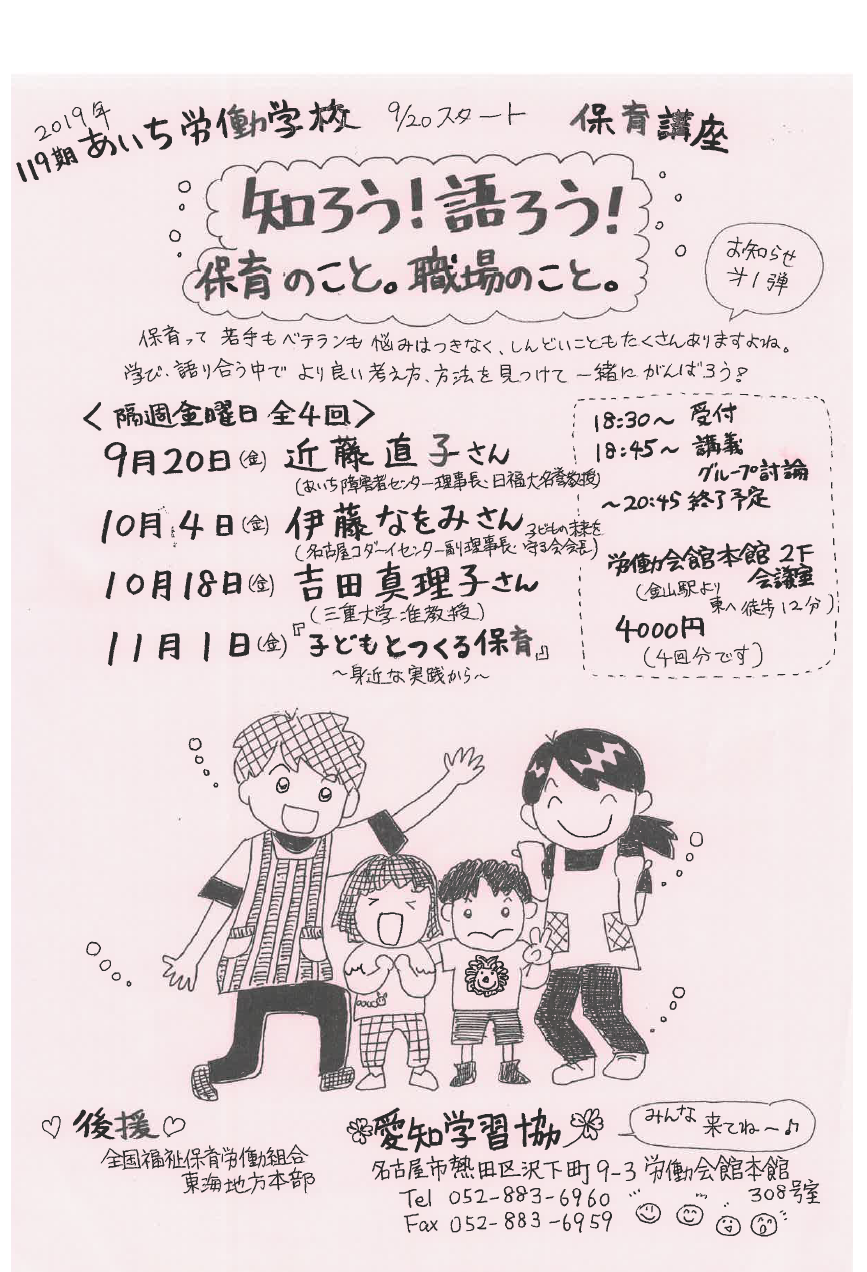 2019年
119期 あいち労働学校 9/20スタート 保育講座
知ろう!語ろう!
保育のこと。職場のこと。
お知らせ
才1弾
保育って 若手もベテランも 悩みはつきなく、しんどいこともたくさんありますよね。
学び、語り合う中で より良い考え方、方法を見つけて 一緒にがんばろう?
<隔週金曜日 全4回>
9月20日(金) 近藤直子さん
(あいち障害者センター理事長、日福大名誉教授)
10月4日(金) 伊藤なをみさん 子どもの未来を
(名古屋コダーイセンター副理事長、守る会会長)
10月18日(金) 吉田真理子さん
(三重大学准教授)
11月1日(金)『子どもとつくる保育』
~身近な実践から~
18:30~ 受付
18:45~ 講義
グループ討論
~20:45 終了予定
労働会館本館 2F
会議室
(金山駅より
東へ徒歩12分)
4000円
(4回分です)
♡ 後援 ♡
全国福祉保育労働組合
東海地方本部
愛知学習協
みんな
来てね~♪
名古屋市熱田区沢下町9-3 労働会館本館
308号室
Tel 052-883-6960
Fax 052-883-6959